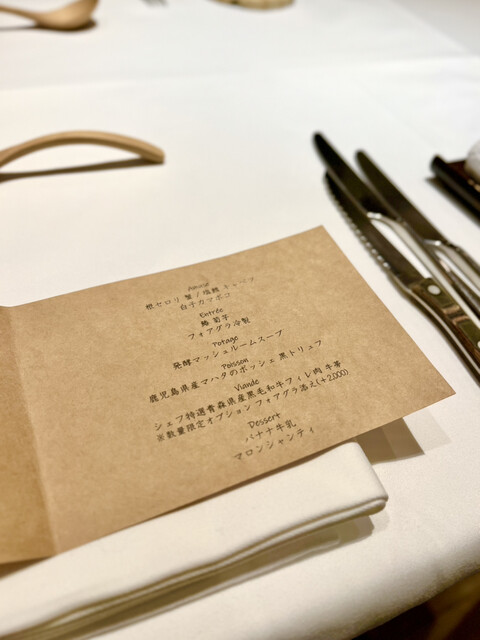 Amuse
根セロリ 蟹 / 塩麹 キャベツ
白子カマボコ
Entrée
鰆 菊芋
フォアグラ冷製
Potage
発酵マッシュルームスープ
Poisson
鹿児島県産マハタのポッシェ 黒トリュフ
Viande
シェフ特選青森県産黒毛和牛フィレ肉 牛蒡
※数量限定オプション フォアグラ添え(+2,000)
Dessert
バナナ牛乳
マロンシャンティ